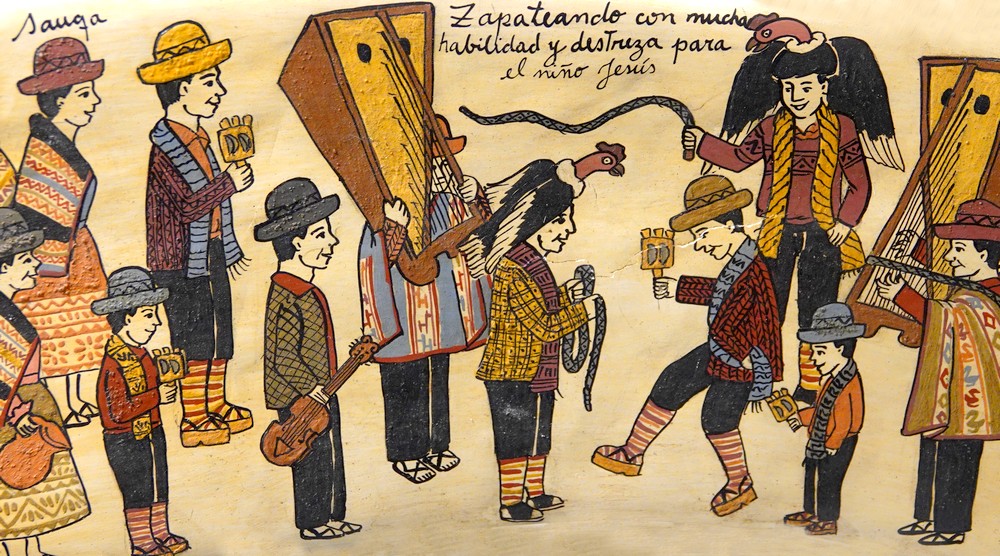 Sauga
Zapateando con mucha
habilidad y destruza para
el niño Jesús